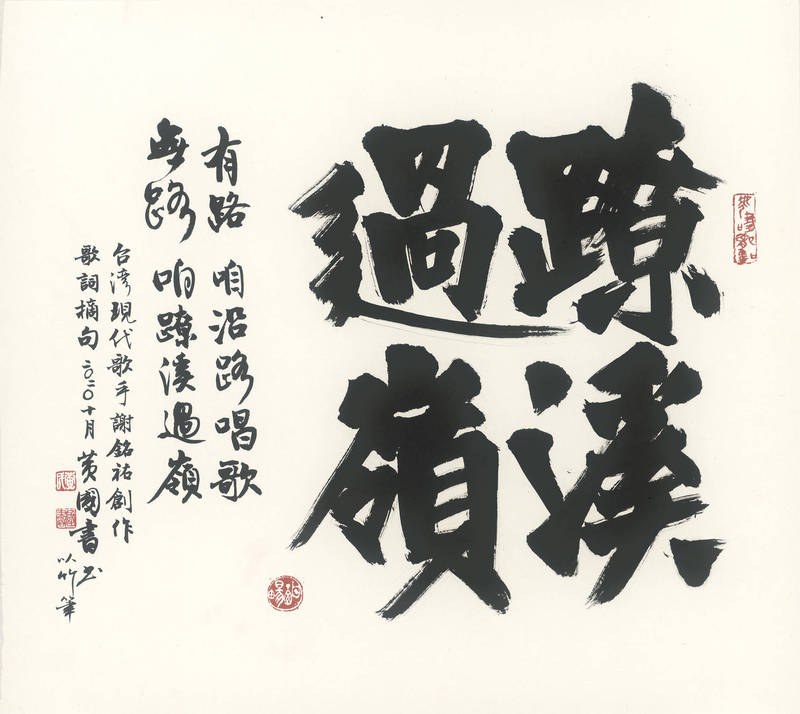 蹽溪
過嶺
有路 咱沿路唱歌
無路 咱蹽溪過嶺
台湾現代歌手謝銘祐創作
歌詞摘句 二〇二〇十月 黃國書书 以竹筆